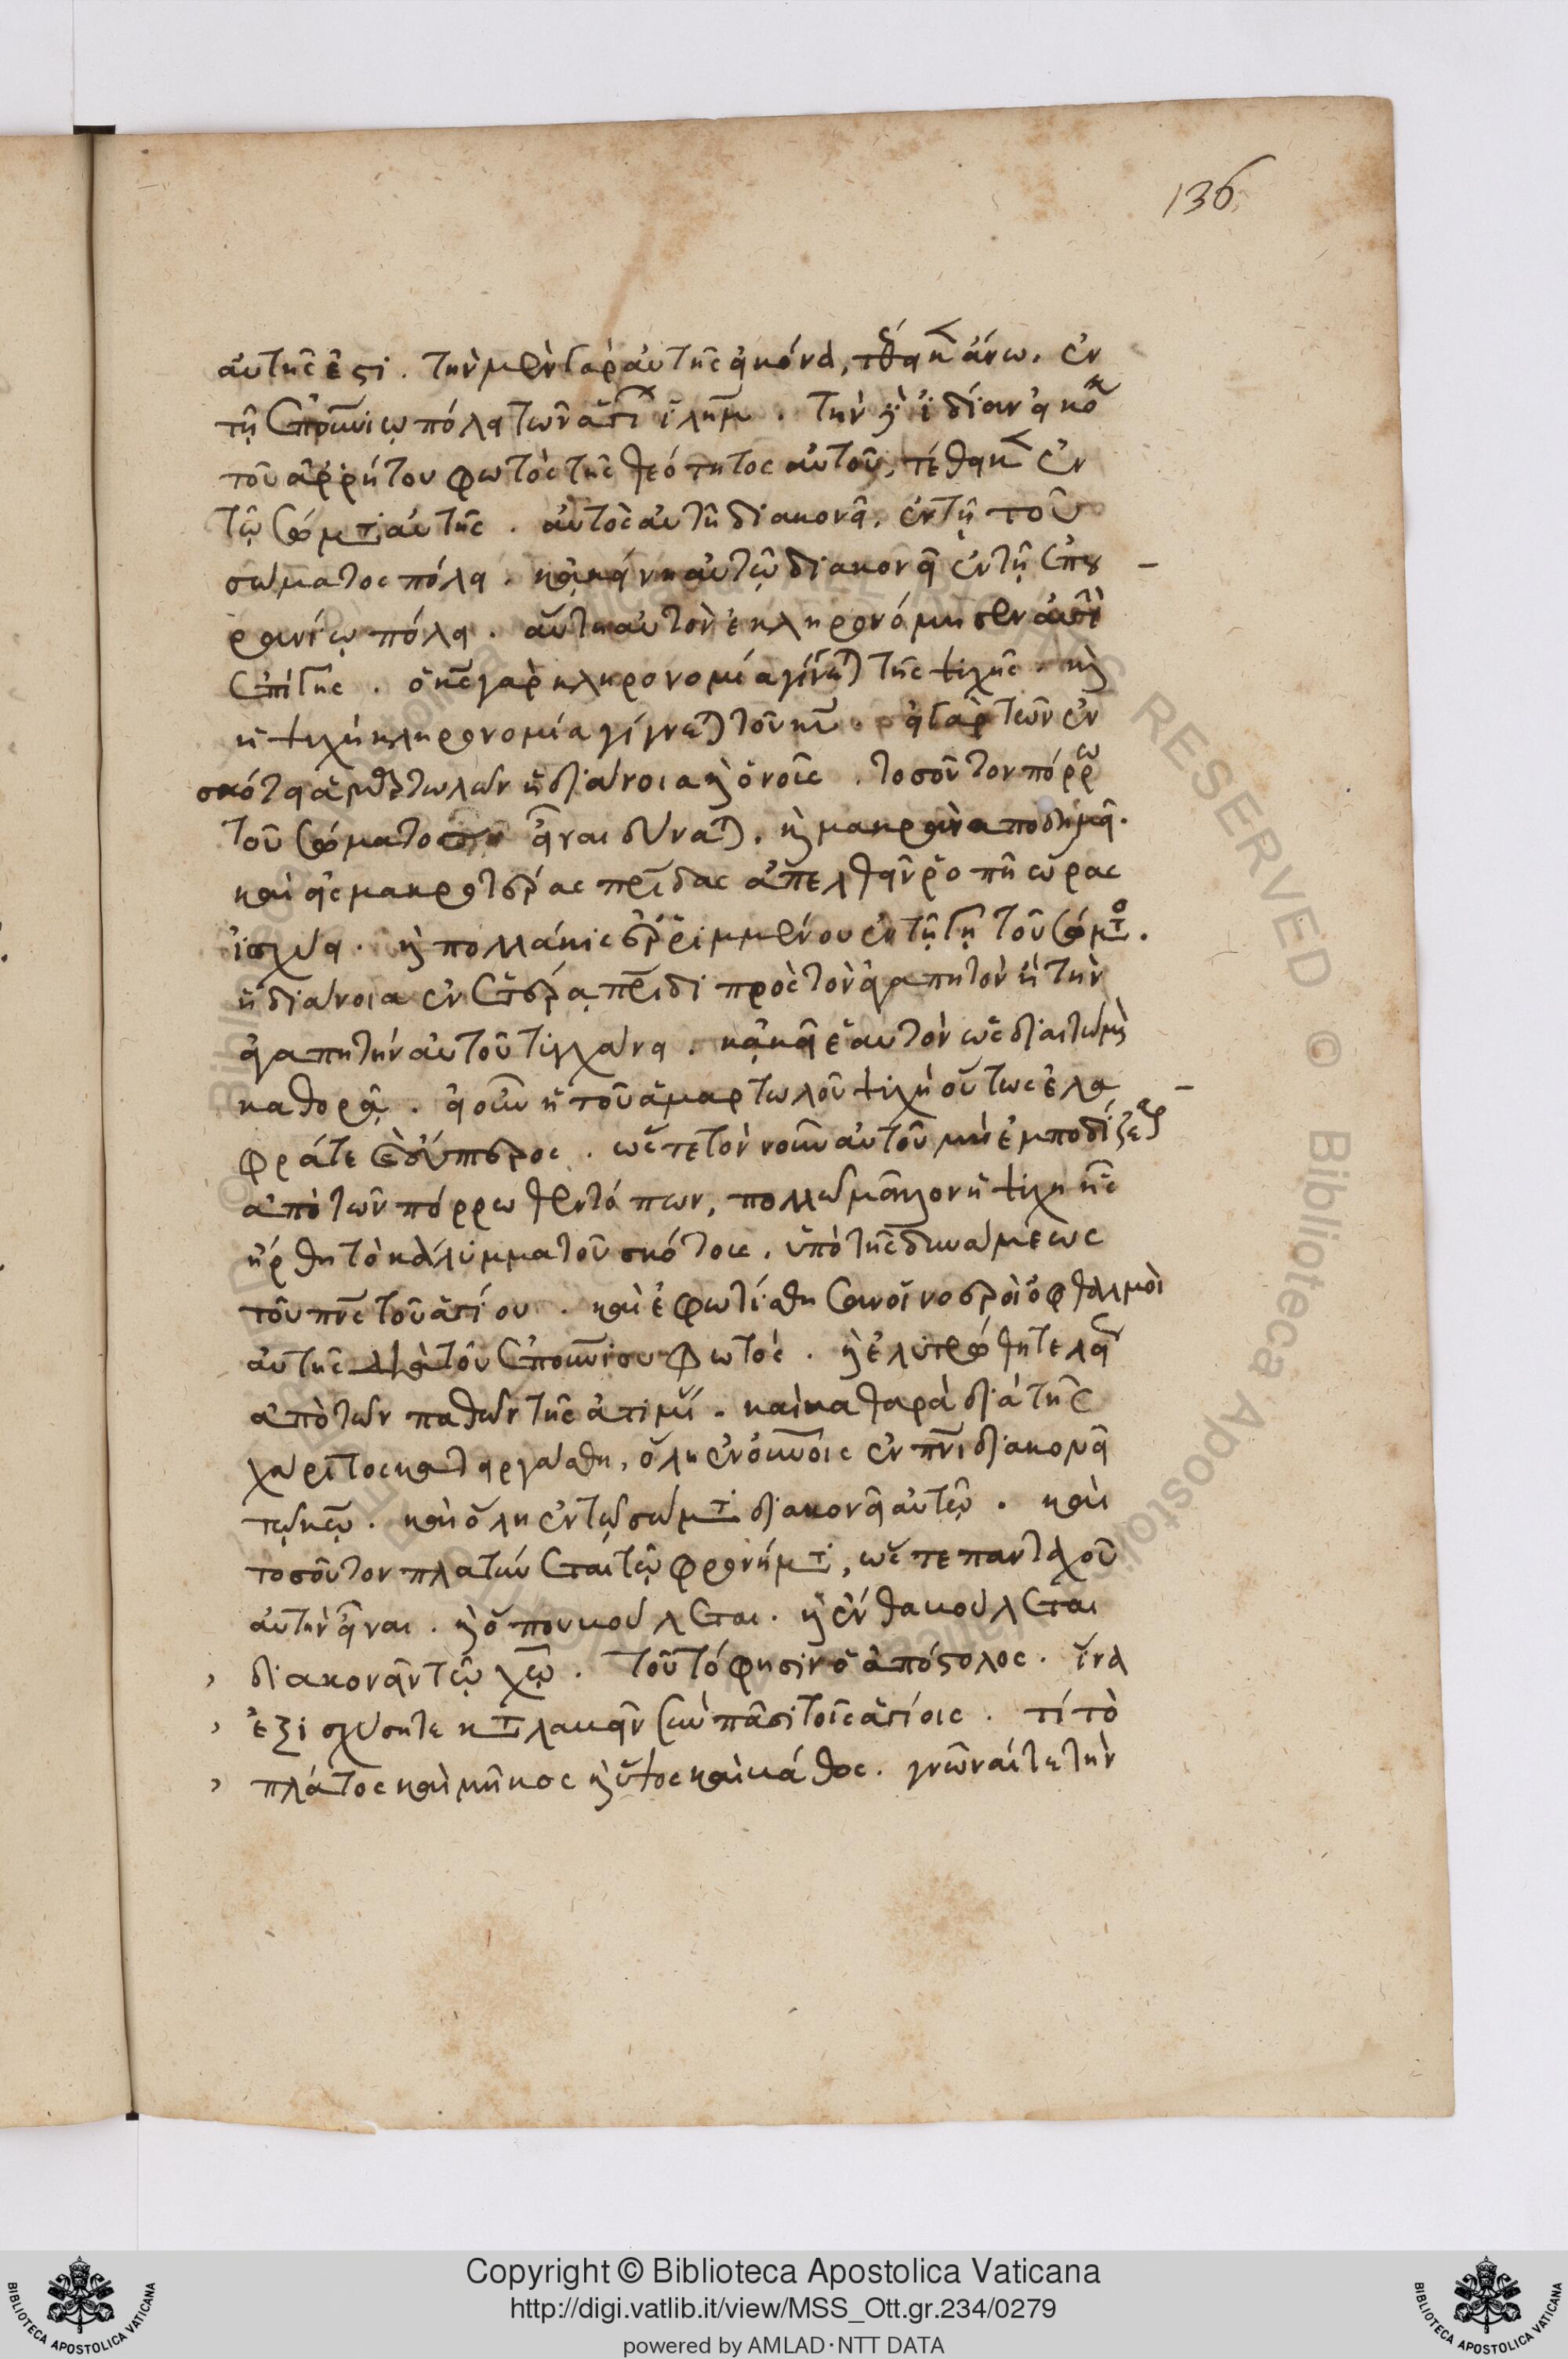 136
αὐτῆς ἐστι. τὴν μὲν γὰρ αὐτῆς εἰκόνα, τέθεικεν ἄνω. ἐν
τῇ ἐπουρανίῳ πόλει τῶν ἁγίων ιλημ. τὴν δὲ ἰδίαν εἰκόνα
τοῦ ἀρρήτου φωτὸς τῆς θεότητος αὐτοῦ, τέθεικεν ἐν
τῷ σώματι αὐτῆς. αὐτὸς αὐτῇ διακονεῖ, ἐν τῇ τοῦ
σώματος πόλει. κἀκείνη αὐτῷ διακονεῖ ἐν τῇ ἐπου
ρανίῳ πόλει. αὕτη αὐτὸν ἐκληρονόμησεν
ἐπὶ γῆς. ὁ κς γὰρ κληρονομία γίνεται τῆς ψυχῆς. καὶ
ἡ ψυχὴ κληρονομία γίγνεται τοῦ κυ. εἰ γὰρ τῶν ἐν
σκότει ἁμαρτωλῶν ἡ διάνοια καὶ ὁ νοῦς. τοσοῦτον πόρρω
τοῦ σώματος εἶναι δύναται. καὶ μακρὰν ἀποδημεῖ.
καὶ εἰς μακροτέρας πριδας ἀπελθεῖν ῥοπῇ ὥρας
ἰσχύει. καὶ πολλάκις ἐρριμμένου ἐν τῇ γῇ τοῦ σώματος.
ἡ διάνοια ἐν ἑτέρᾳ πριδι πρὸς τὸν ἀγαπητὸν ἢ τὴν
ἀγαπητὴν αὐτοῦ τυγχάνει. κἀκεῖ ἑαυτὸν ὡς διαιτώμενον
καθορᾷ. εἰ οὖν ἡ τοῦ ἁμαρτωλοῦ ψυχὴ οὕτως ἐλα
φρά τε καὶ εὔπτερος. ὥστε τὸν νοῦν αὐτοῦ μὴ ἐμποδίζεσθαι
ἀπὸ τῶν πόρρωθεν τόπων, πολλῷ μᾶλλον ἡ ψυχὴ ἧς
ἤρθη τὸ κάλυμμα τοῦ σκότους. ὑπὸ τῆς δυνάμεως
τοῦ πνς τοῦ ἁγίου. καὶ ἐφωτίσθησαν οἱ νοεροὶ ὀφθαλμοὶ
αὐτῆς διὰ τοῦ ἐπουρανίου φωτός. καὶ ἐλυτρώθη τελείως
ἀπὸ τῶν παθῶν τῆς ἀτιμίας. καὶ καθαρὰ διὰ τῆς
χάριτος κατειργάσθη, ὅλη ἐν οὐνοῖς ἐν πνι διακονεῖ
τῷ κῷ. καὶ ὅλη ἐν τῷ σώματι διακονεῖ αὐτῷ. καὶ
τοσοῦτον πλατύνεται τῷ φρονήματι, ὥστε πανταχοῦ
αὐτὴν εἶναι. καὶ ὅπου βούλεται. καὶ ἔνθα βούλεται
διακονεῖν τῷ χῷ. τοῦτό φησιν ὁ ἀπόστολος. ἵνα
ἐξισχύσητε καταλαβεῖν σὺν πᾶσι τοῖς ἁγίοις. τί τὸ
πλάτος καὶ μῆκος καὶ ὕψος καὶ βάθος. γνῶναί τε τὴν
Copyright © Biblioteca Apostolica Vaticana
http://digi.vatlib.it/view/MSS_Ott.gr.234/0279
powered by AMLAD·NTT DATA
BIBLIOTECA APOSTOLICA VATICANA
BIBLIOTECA APOSTOLICA VATICANA